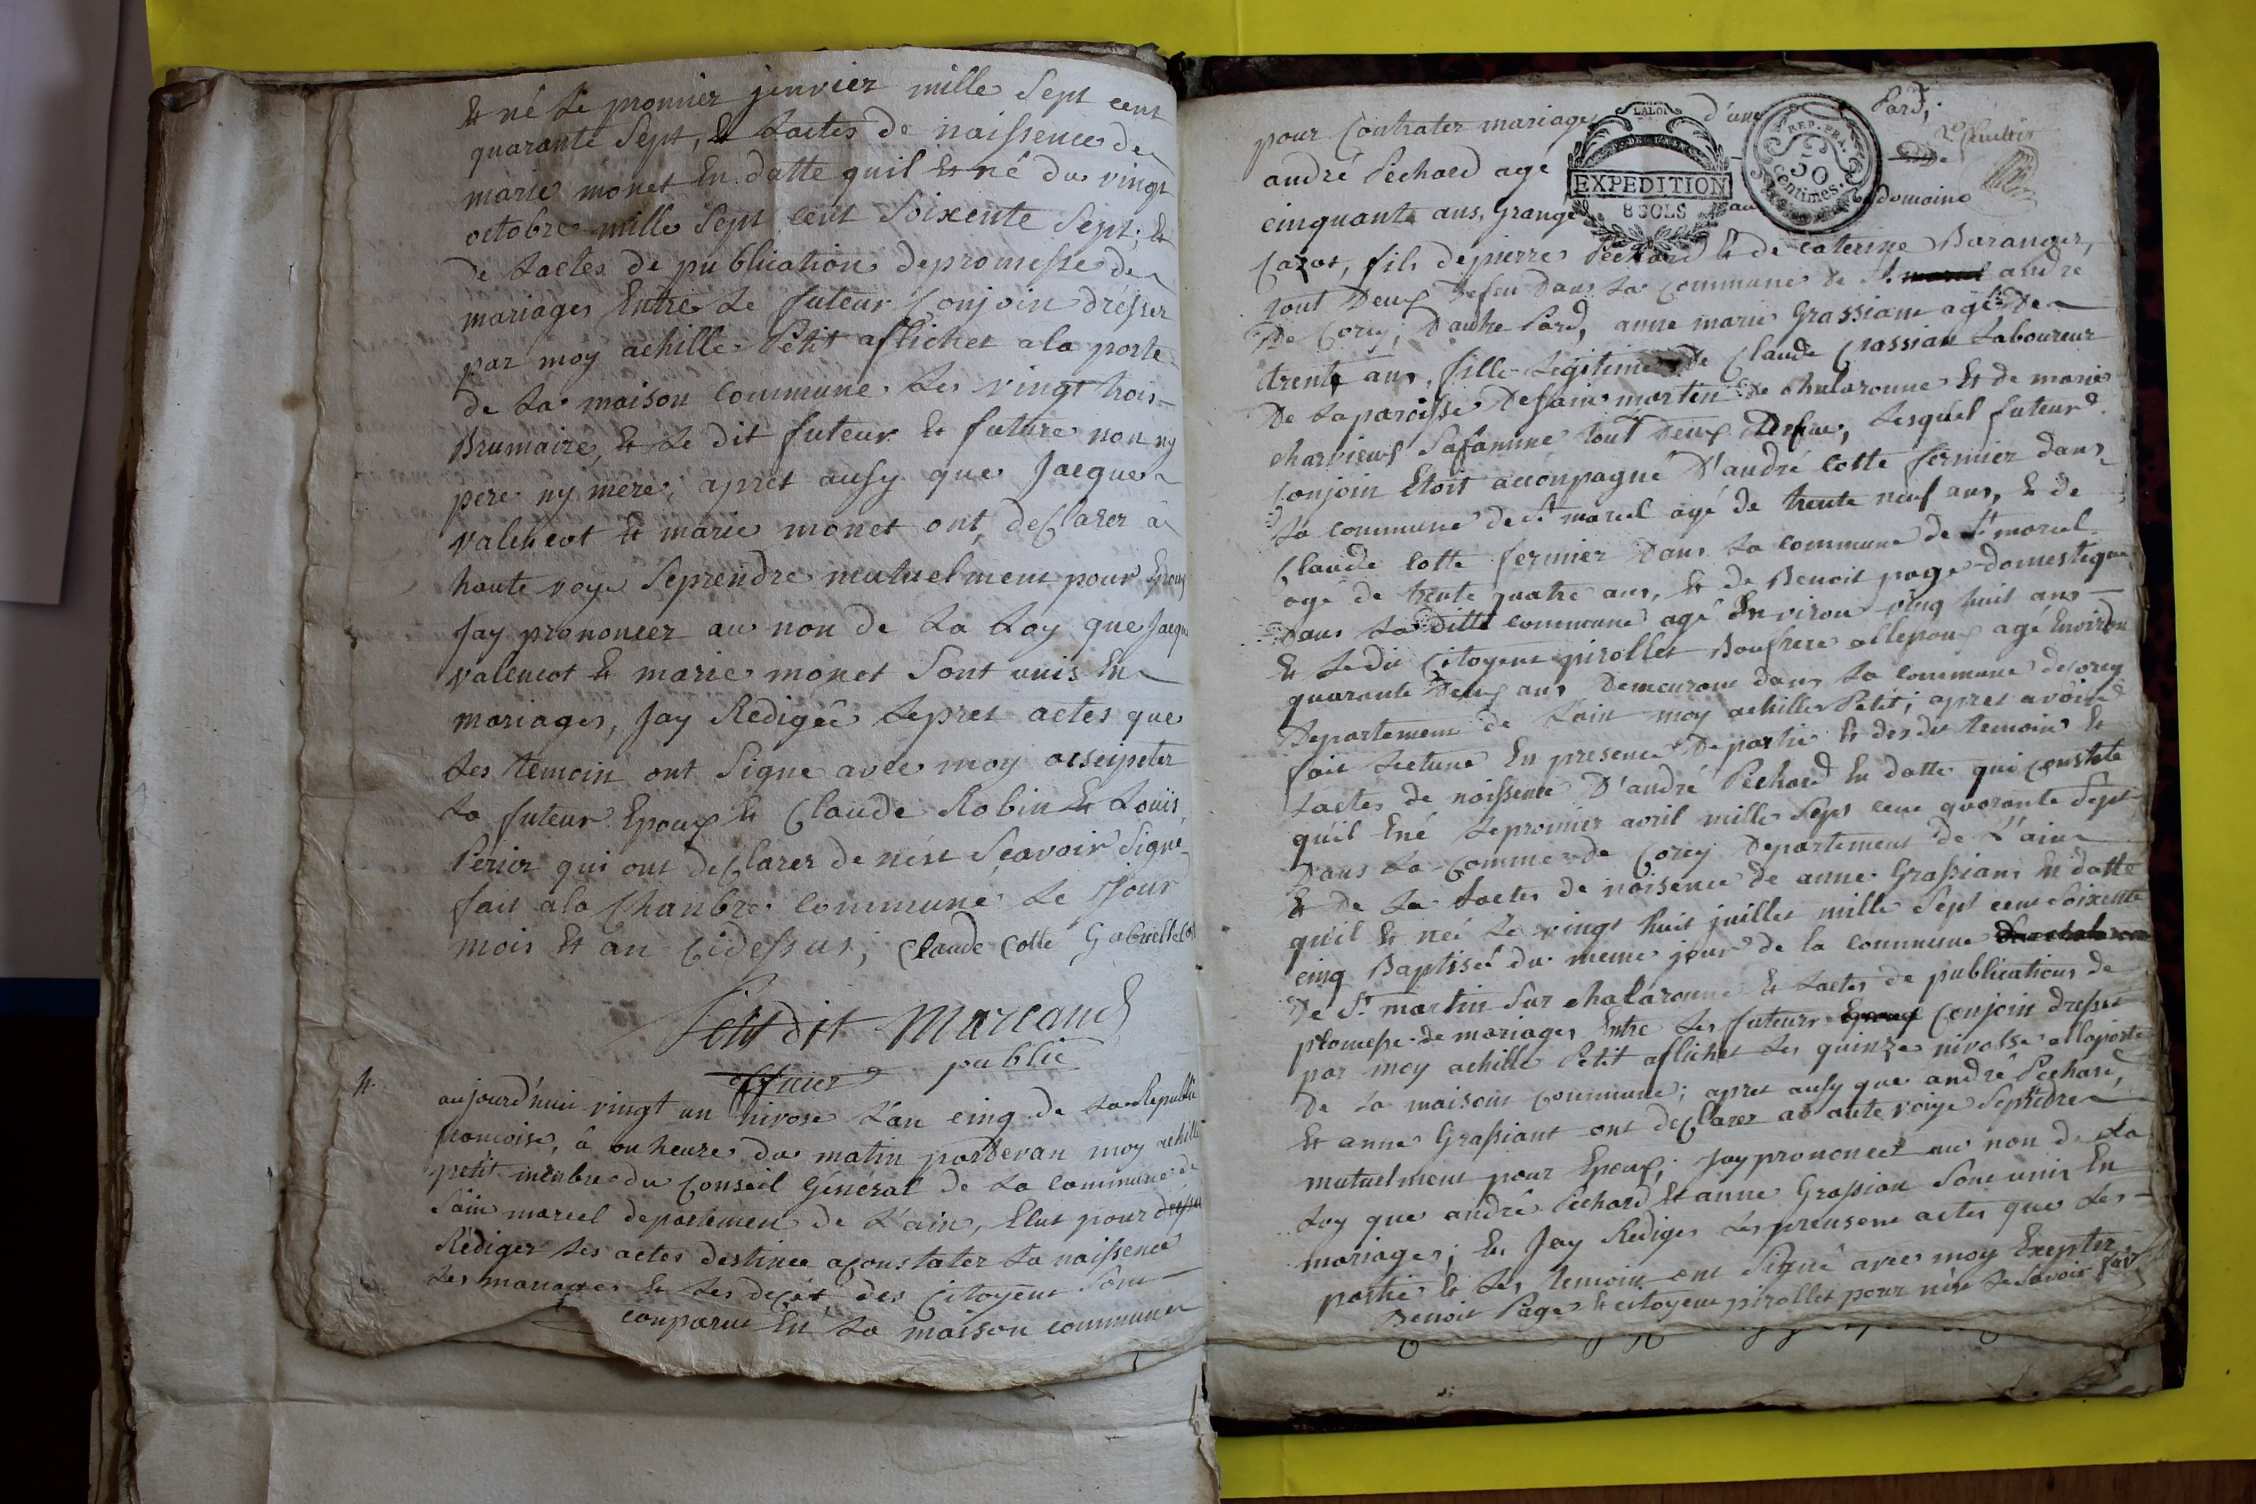 Et né Le promiez jenvier mille Sept cent
quarante Sept, Et Lactes de naissence de
marie monet En datte quil Et né du vingt
octobre mille Sept cent Soixente Sept; Et
de Lactes de publication depromesse de
mariages Entre Le futeur Conjoin drésser
par moy achille Petit affichet a la porte
de La maison Commune Les vingt trois
Brumaire, Et Le dit futeur Et future non ny
pere ny mere; apret ausy que Jacque
valencot Et marie monet ont declarer à
haute voye Seprendre mutuelment pour Epoux
Jay prononcer au non de La Loy que Jacque
valencot Et marie monet Sont unis En
mariages, Jay Redigée Lepret actes que
Les temoin ont Signe avec moy
La futeur Epoux Et Claude Robin Et Louis
Perier qui ont declarer de nésc Scavoir Signe
fait a la Chanbre Commune Le Jour
mois Et an Cidessus; Claude Cotte Gabrielle
Petit dit marcand
officier public
4.
aujourd'huii vingt un nivose L'an cinq de La Republi
francoise, à on heure du matin pardevan moy achille
petit menbre du Conseil Géneral de La Commune de
Sain marcel departemen de L'ain, Elut pour
Rédiger Les actes destinee aconstater La naissence
Les mariages Et Les decet des Citoyent Som
conparue En La maison commune
pour Contrater mariage d'une Pard,
andré Pechard age de
cinquante ans, Granger au domaine
LALOI
EXPEDITION
8 SOLS
REP. FRA.
50
Centimes.
Cazot, fils depierre Péchard Et de Caterine Baranger,
tout Deux Defeu Dans La Commune de St andré
De Corcy; Dautre Pard, anne marie Grassiant agée De
trente ans, fille Légitime de Claude Grassian Laboureur
De Laparoisse Desain martin De chalaronne Et de marie
Safamme tout Deux Defeu, Lesquel futeur
Conjoin Etoit acconpagné D'andré Cotte fermier dans
La commune de St marcel agé de trente neuf ans, Et de
Claude Cotte fermier Dans La Commune de St marcel
agé de trente quatre ans, Et de Benoit page domestique
Dans La Ditte commune agé Environ vinq huit ans
Et Le dit Citoyent pirollet Boufrere allepoux agé Environ
quarante Deux ans Demeurant dans La Commune decorcy
Departement de L'ain moy achille Petit; apret avoire
fait Lecture En presence Departie Et des dit temoin Et
Lactes de naissence D'andré Péchard En datte qui constate
qu'il Ené Lepromier avril mille Sept cent quarante Sept
Dans La Commune de Corcy Departement de L'ain
Et De La Lactes de naisence de anne Grassiant En datte
qu'il Et neé Le vingt huit juillet mille Sept cent Soixente
cinq Baptisée du meme jour de la Commune
De St martin Sur chalaronne Et Lactes de publications de
promesse de mariages Entre Les futeurs Epoux Conjoin dresse
par moy achille Petit affichet Les quinze nivosse allaporte
De La maison Commune; apret ausy que andré Pechard,
Et anne Grassiant ont declarer at aute voiye Seprendre
mutuelment pour Epoux; Jay prononcer au non de La
Loy que andré Pechard Et anne Grassian Sont unis En
mariages; En Jay Rediges Les prensent actes que Les
partie Et Les temoin ont Signé avec moy Exepter
Benoit Page Et citoyent pirollet pour nést Le Savoir fait